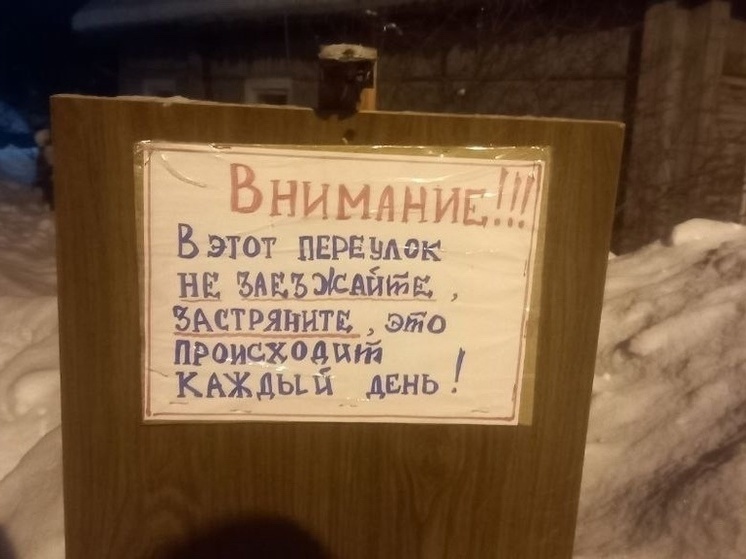 ВНИМАНИЕ!!!
В ЭТОТ ПЕРЕУЛОК
НЕ ЗАЕЗЖАЙТЕ,
ЗАСТРЯНИТЕ, ЭТО
ПРОИСХОДИТ
КАЖДЫЙ ДЕНЬ!